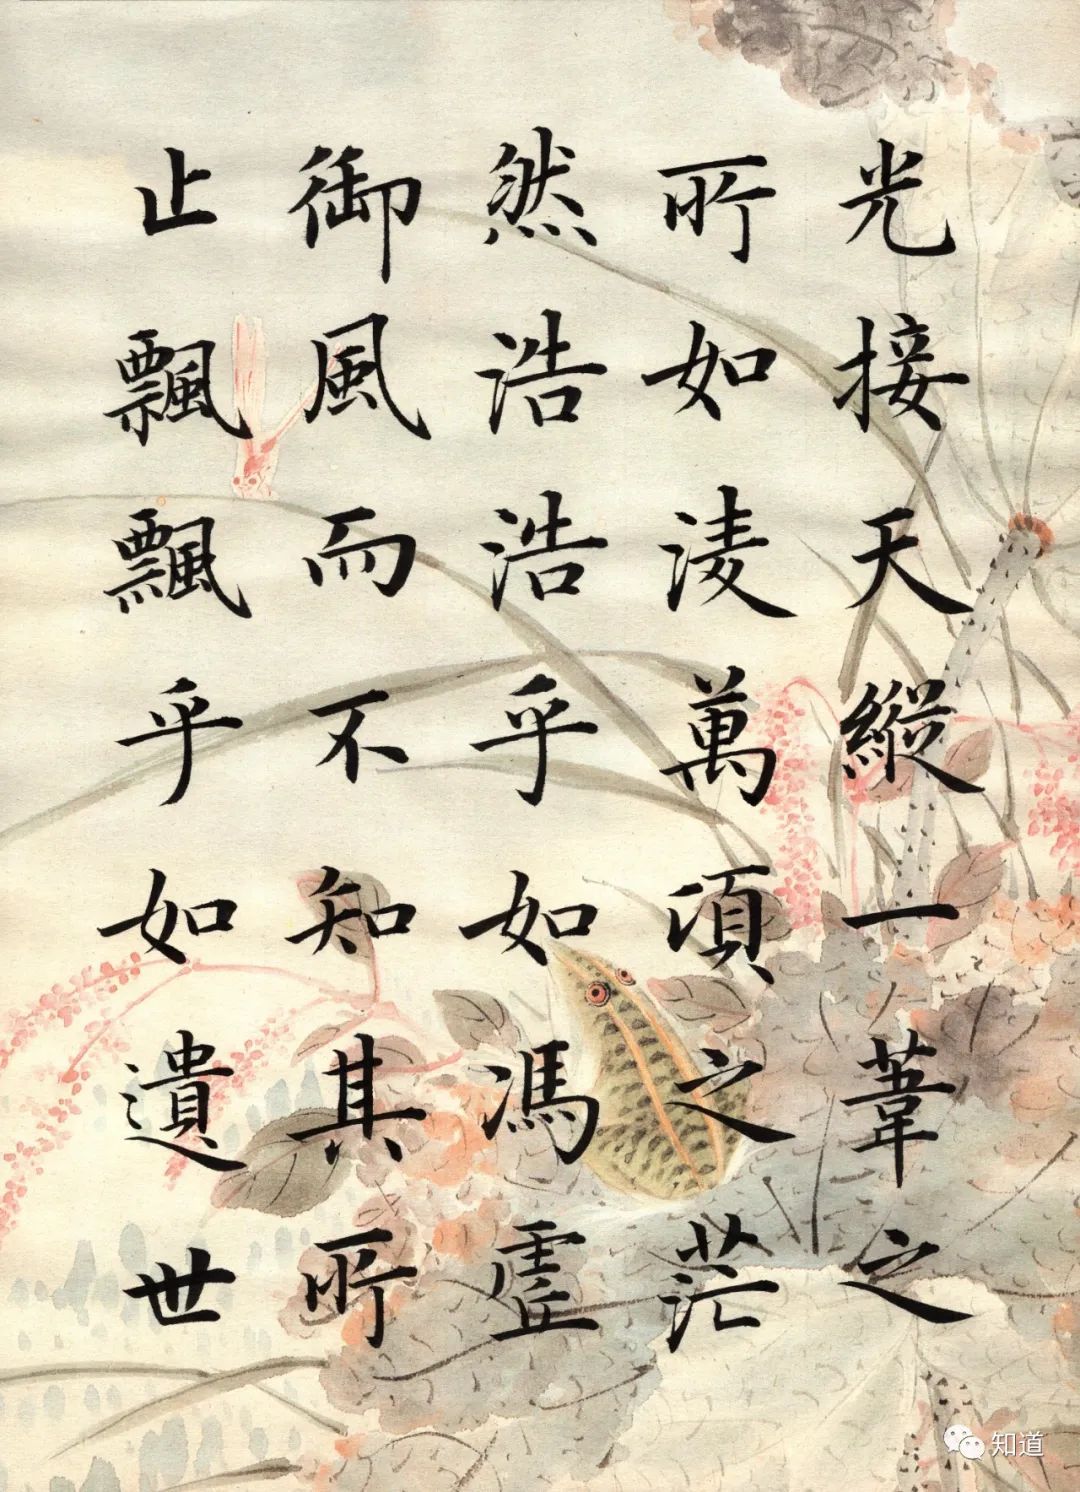 光接天縱一葦之
所如淩萬頃之茫
然浩浩乎如馮虛
御風而不知其所
止飄飄乎如遺世
知道